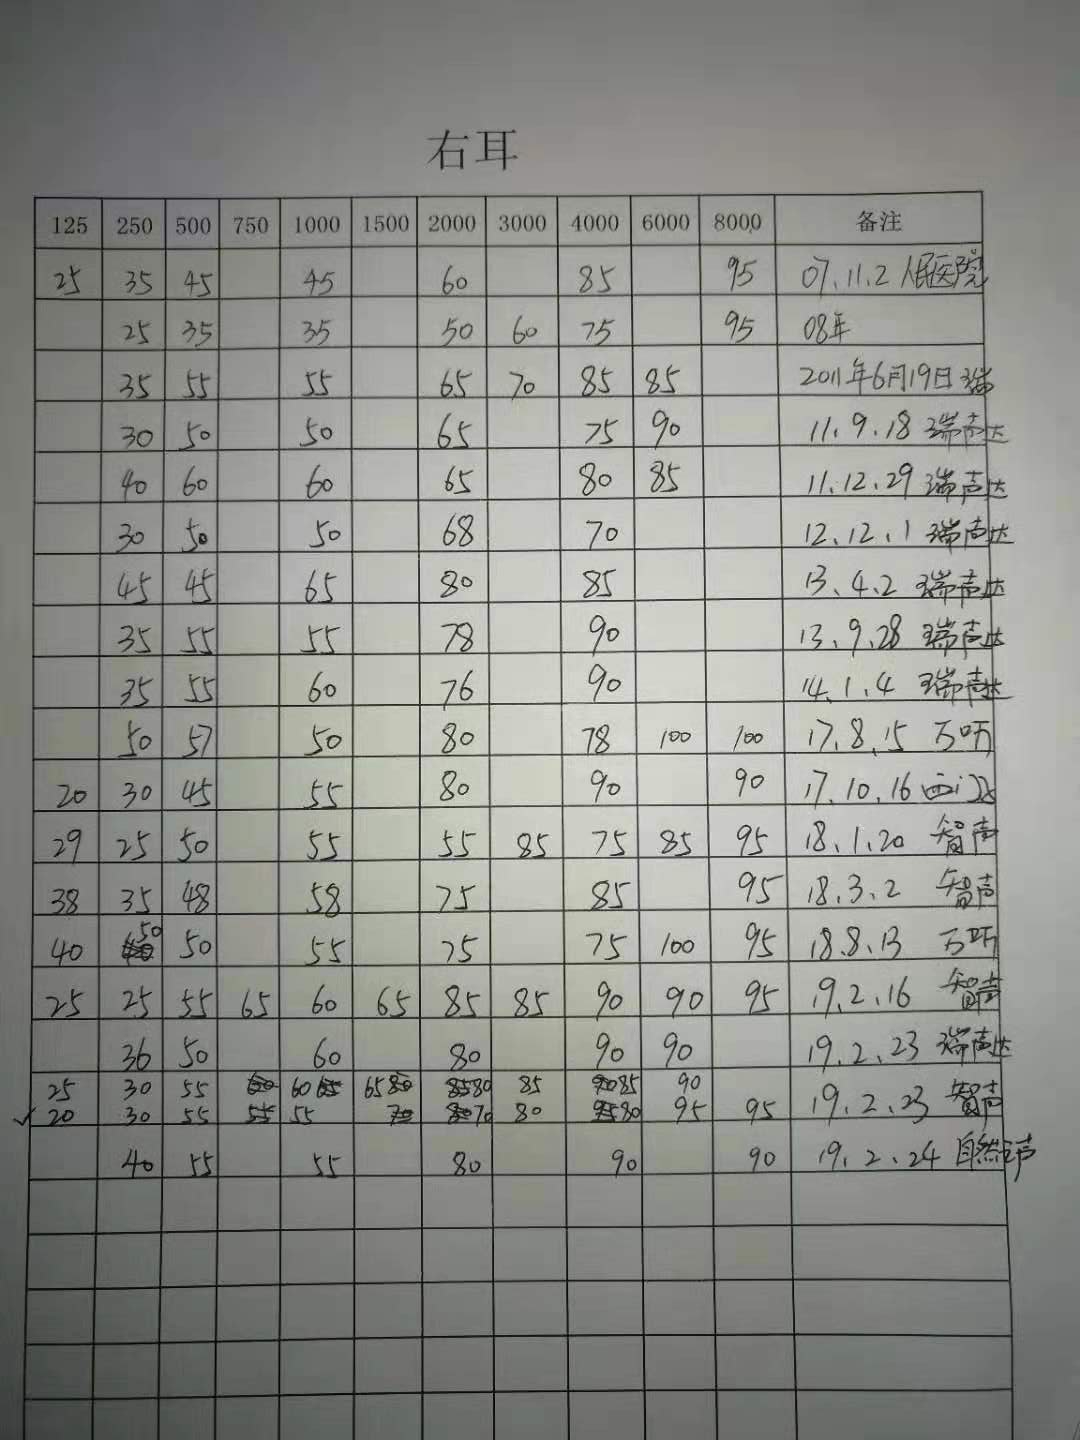 右耳
125 250 500 750 1000 1500 2000 3000 4000 6000 8000 备注
25 35 45 45 60 85 95 07.11.2 人民医院
25 35 35 50 60 75 95 08年
35 55 55 65 70 85 85 2011年6月19日 瑞
30 50 50 65 75 90 11.9.18 瑞声达
40 60 60 65 80 85 11.12.29 瑞声达
30 50 50 68 70 12.12.1 瑞声达
45 45 65 80 85 13.4.2 瑞声达
35 55 55 78 90 13.9.28 瑞声达
35 55 60 76 90 14.1.4 瑞声达
50 57 50 80 78 100 100 17.8.15 万听
20 30 45 55 80 90 90 17.10.16 西门子
29 25 50 55 55 85 75 85 95 18.1.20 智声
38 35 48 58 75 85 95 18.3.2 智声
40 50 50 55 75 75 100 95 18.8.13 万听
25 25 55 65 60 65 85 85 90 90 95 19.2.16 智声
36 50 60 80 90 90 19.2.23 瑞声达
25 30 55 60 65 80 85 85 90
✓ 20 30 55 55 70 80 80 95 95 19.2.23 智声
40 55 55 80 90 90 19.2.24 自然之声